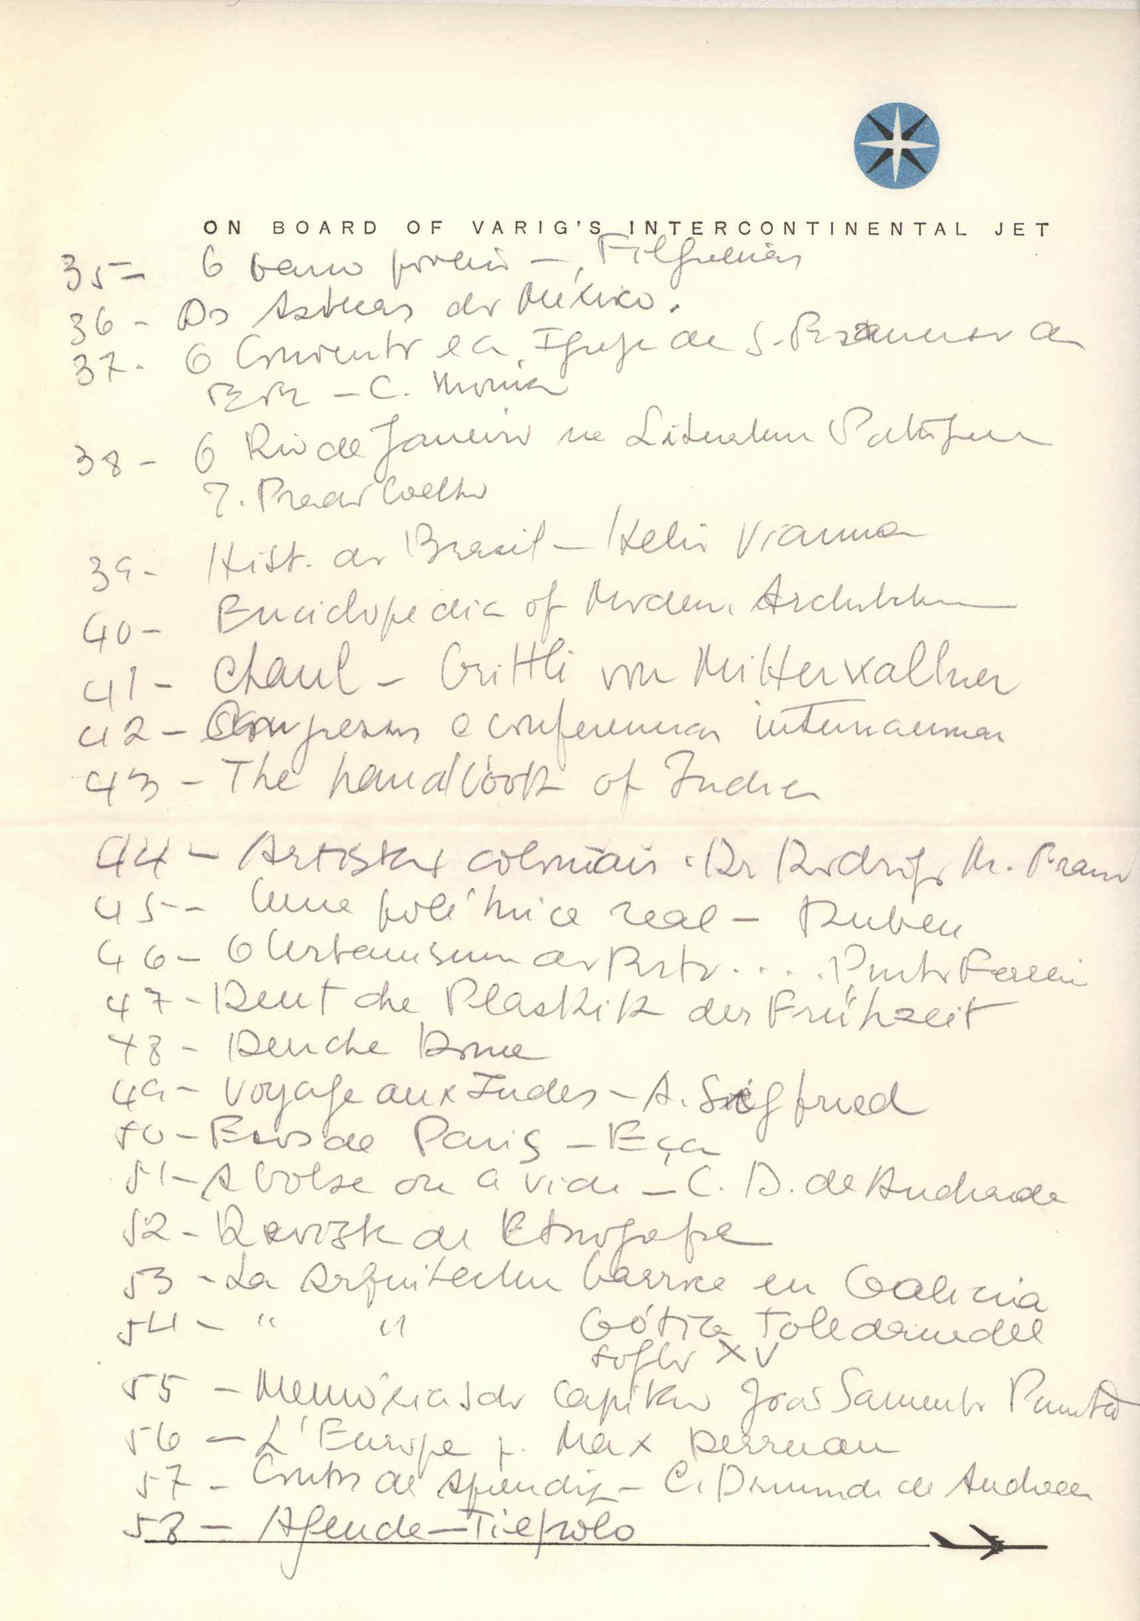 ON BOARD OF VARIG'S INTERCONTINENTAL JET
35- O barro - Filgueiras
36- Os Aztecas do México.
37- O Convento e a Igreja de S. da
- C. Moniz
38- O Rio de Janeiro na Literatura Portuguesa
J. Prado Coelho
39- Hist. do Brasil - Helio Vianna
40- Enciclopedia of Modern Architecture
41- Chaul - Gritli von Mitterwallner
42- Congressos e conferencias internacionais
43- The handbook of India
44- Artistas coloniais - Dr Rodrigo M. Franco
45- Uma polémica real - Ruben
46- O Urbanismo do Porto .... Pinto Ferreira
47- Deutche Plastik der Frühzeit
48- Deuche Dome
49- Voyage aux Indes - A. Siegfried
50- Ecos de Paris - Eça
51- A bolsa ou a vida - C. D. de Andrade
52- Revista de Etnografia
53- La Arquitectura barroca en Galicia
54- " " Gótica Toledana del
siglo XV
55- Memórias do Capitão João Sarmento Pimentel
56- L'Europe p. Max Derruau
57- Contos de Aprendiz - C. Drumond de Andrade
58- Agenda - Tiepolo